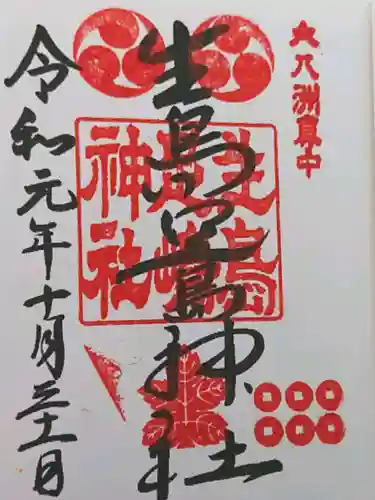 大八洲真中
生島足島神社
生島
足嶋
神社
令和元年十月三十一日